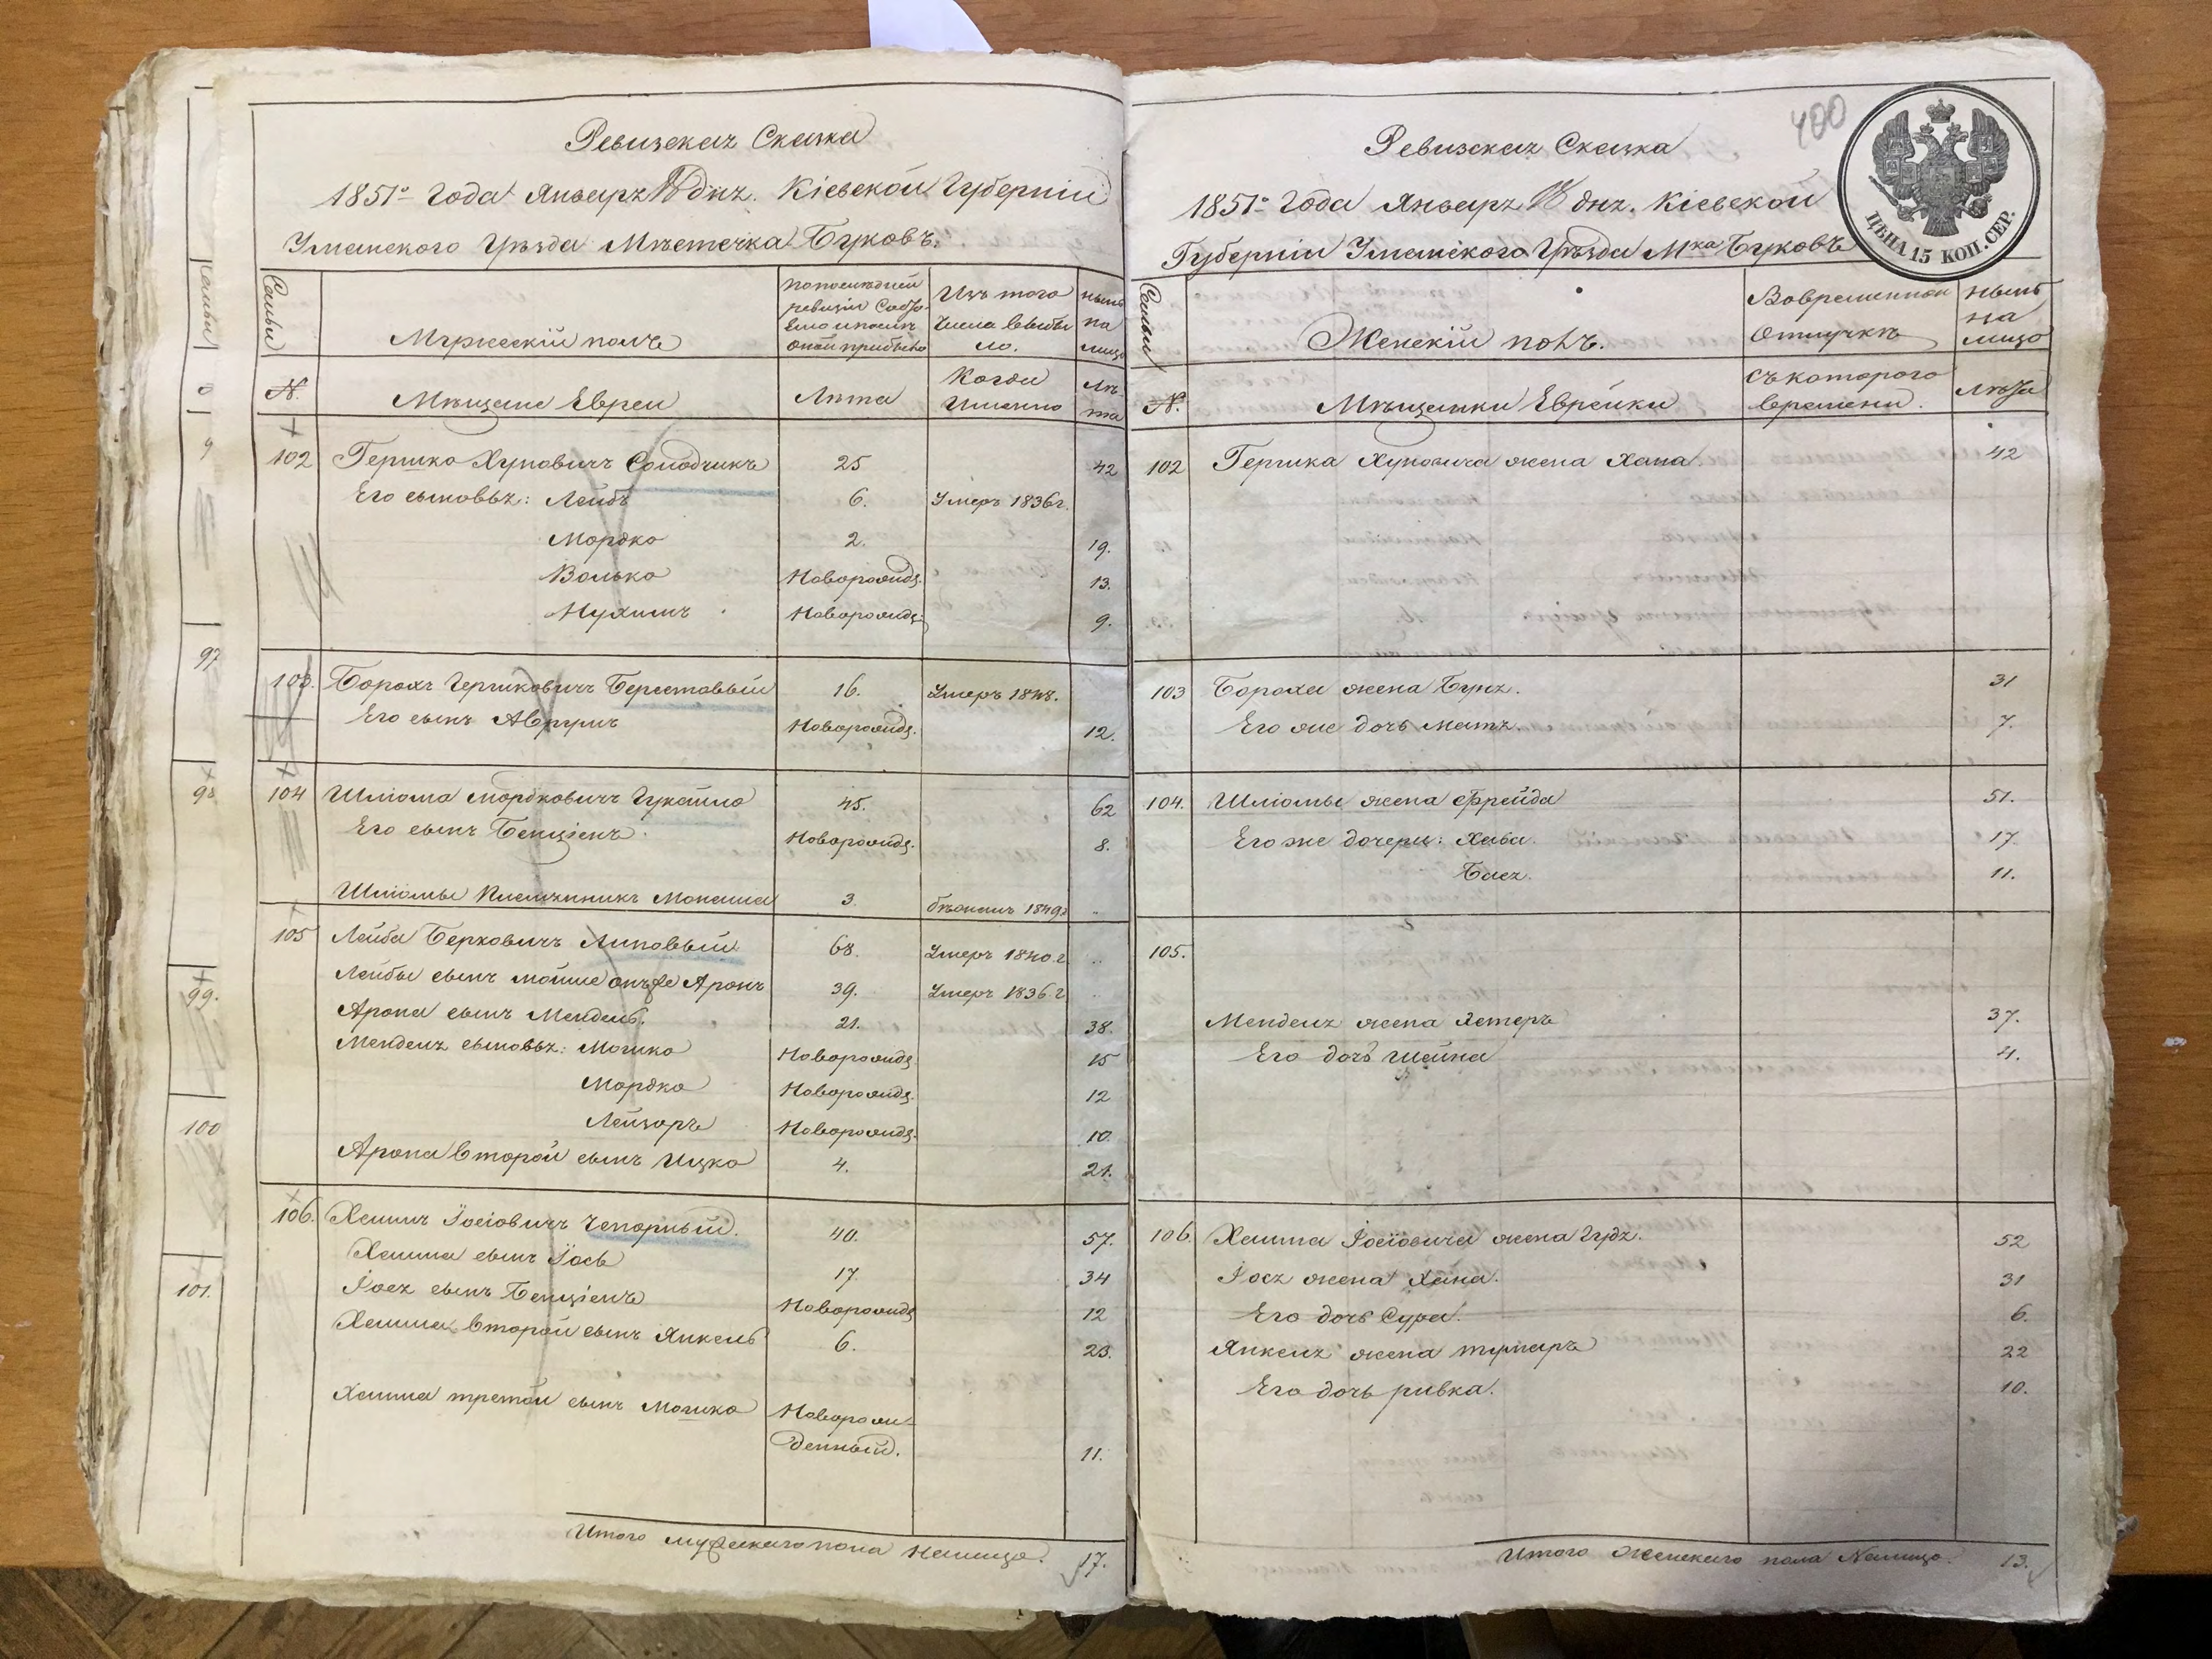 Ревизская Сказка
1851го Года Января дня. Кіевской Губерніи
Уманского Уѣзда Мѣстечка Буковъ:
Семьи
Семьи
Мужескій полъ
По последней ревизіи Состояло и после оной прибыло
Изъ того Числа выбыло.
Нынѣ на лицо
N.
Мѣщане Евреи
Лѣта
Когда Именно
Лѣта
9
102 Гершко Хуновичъ Солодчикъ 25 42
Его сыновья: Лейбъ 6. Умеръ 1836г.
Мордко 2. 19.
Волько Новорожд. 13.
Нухимъ Новорожд. 9.
97
103. Борохъ Гершковичъ Берестовый 16. Умеръ 1848.
Его сынъ Аврумъ Новорожд. 12.
98
104 Шліома Мордковичъ 45. 62
Его сынъ Бенціенъ. Новорожд. 8.
Шліомы Племянникъ Монаша 3 бѣжалъ 1849г
105 Лейба Берковичъ Липовый 68. Умеръ 1840.г.
99.
Лейбы сынъ Мойше онъже Аронъ 39. Умеръ 1836.г
Арона сынъ Мендель. 21. 38.
Менделя сыновья: Мошко Новорожд. 15
Мордко Новорожд. 12
100
Лейзоръ Новорожд. 10.
Арона второй сынъ Ицко 4. 21.
106. Хаимъ Іосіовичъ Чепорный. 40. 57.
Хаима сынъ Іось 17. 34
101.
Іося сынъ Бенціенъ Новорожд 12
Хаима второй сынъ Янкель 6. 23.
Хаима третій сынъ Мошко Новорож-
денный. 11.
Итого мужескаго пола Налицо. 17.
400
Ревизская Сказка
1851го Года Января дня. Кіевской
Губерніи Уманского Уѣзда Мка Буковъ
ЦѢНА 15 КОП. СЕР.
Семьи
Женскій полъ.
Во временной отлучкѣ
Нынѣ на лицо
N.
Мѣщанки Еврейки
съ которого времени.
Лѣта
102 Гершка Хуновича жена Хана. 42
103 Бороха жена Буня. 31
Его же дочь Матя. 7.
104. Шліомы жена Фрейда 51.
Его же дочери: Хава. 17.
Бася. 11.
105.
Менделя жена Эстеръ 37.
Его дочь Шейна 4.
106. Хаима Іосіовича жена Гудя. 52
Іося жена Хана. 31
Его дочь Сура. 6.
Янкеля жена тумаръ 22
Его дочь ривка. 10.
Итого Женскаго пола Налицо. 13.